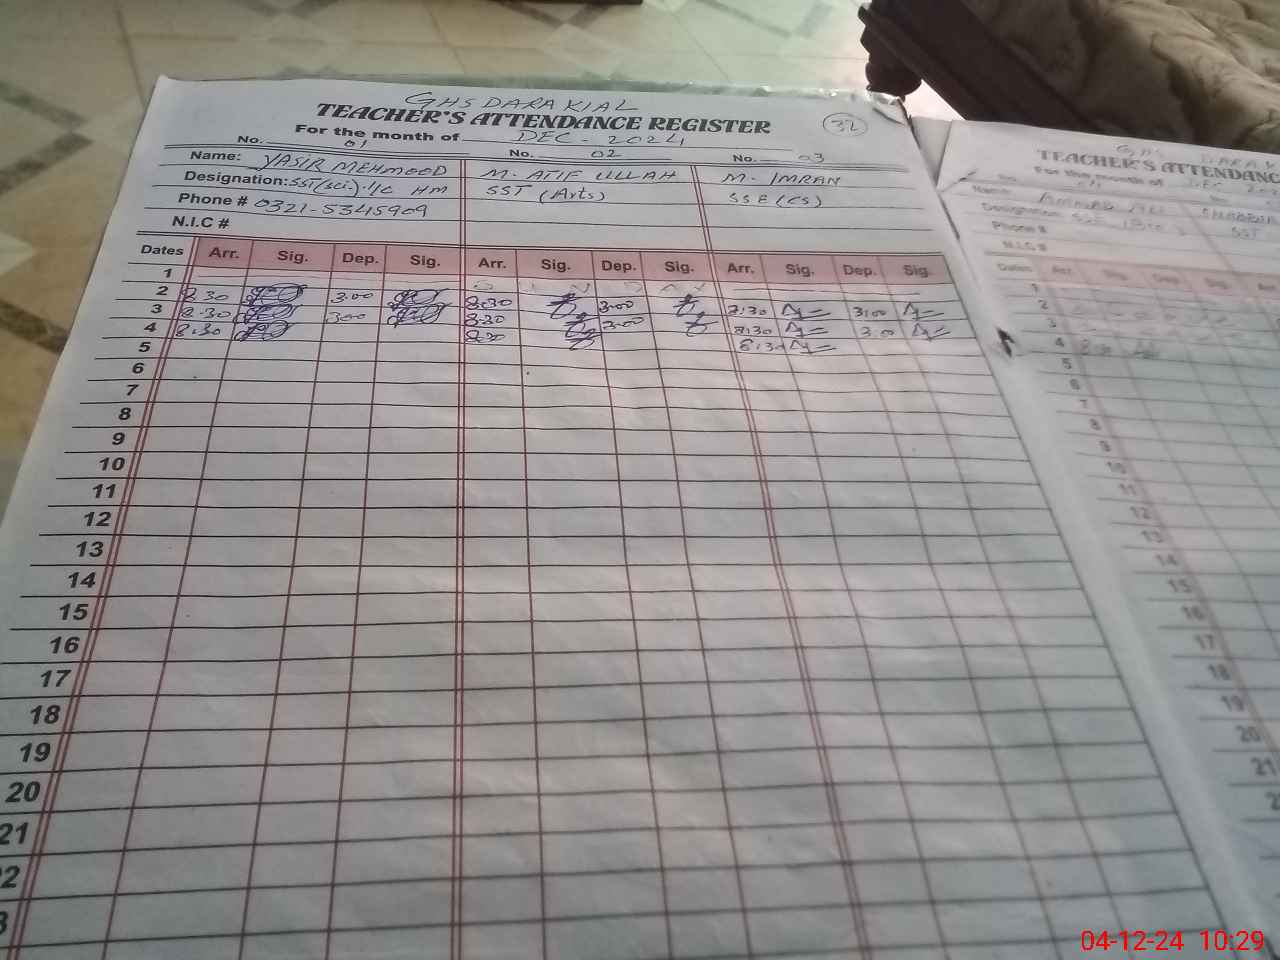 GHS DARA KIAL
TEACHER'S ATTENDANCE REGISTER
32
For the month of DEC - 2024
No. 01 No. 02 No. 03
Name: YASIR MEHMOOD M. ATIF ULLAH M. IMRAN
Designation: SST(Sci.) I/C HM SST (Arts) SSE (CS)
Phone # 0321-5345909
N.I.C #
Dates Arr. Sig. Dep. Sig. Arr. Sig. Dep. Sig. Arr. Sig. Dep. Sig.
1 S U N D A Y
2 8.30 3.00 8:30 3:00 8:30 3:00
3 8.30 3.00 8:30 3:00 8:30 3:00
4 8.30 8:30 8:30
5
6
7
8
9
10
11
12
13
14
15
16
17
18
19
20
21
22
GHS DARA K
TEACHER'S ATTENDANC
For the month of DEC
Name:
Designation: SST
Phone #
N.I.C #
Dates Arr. Sig. Dep. Sig. Arr.
1
2
3
4
5
6
7
8
9
10
11
12
13
14
15
16
17
18
19
20
21
04-12-24 10:29